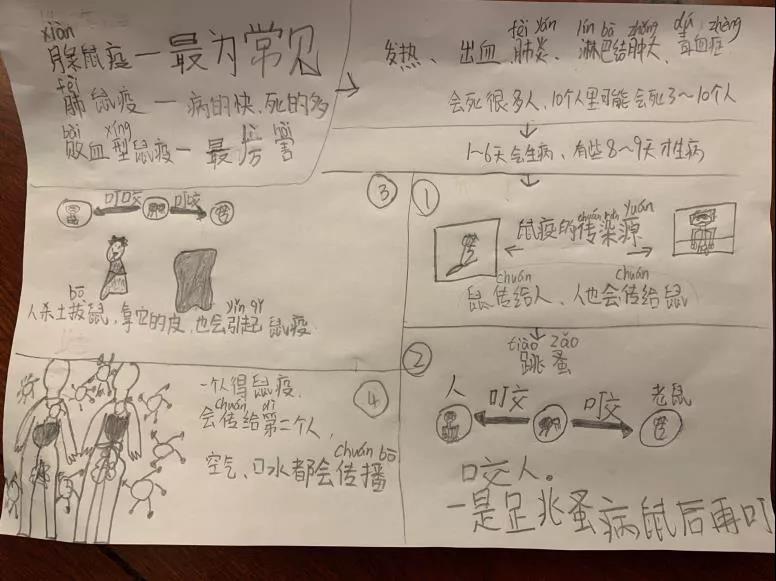 xiàn
腺鼠疫一最为常见
fèi
肺鼠疫 一 病的快,死的多
bài xíng
败血型鼠疫一最厉害
fèi yán lín bā zhǒng dú zhèng
发热、出血、肺炎、淋巴结肿大、毒血症
会死很多人,10个人里可能会死3~10个人
1~6天会生病、有些8~9天才生病
①
chuán rǎn yuán
鼠疫的传染源
chuán chuán
鼠传给人、人也会传给鼠
②
tiào zǎo
跳蚤
人 叮交 叮交 老鼠
口交人。
一是足兆蚤病鼠后再叮
③
叮咬 叮咬
bō yǐn qǐ
人杀土拨鼠,拿它的皮,也会引起鼠疫
④
一个人得鼠疫,
chuán dì
会传给第二个人,
chuán bō
空气、口水都会传播